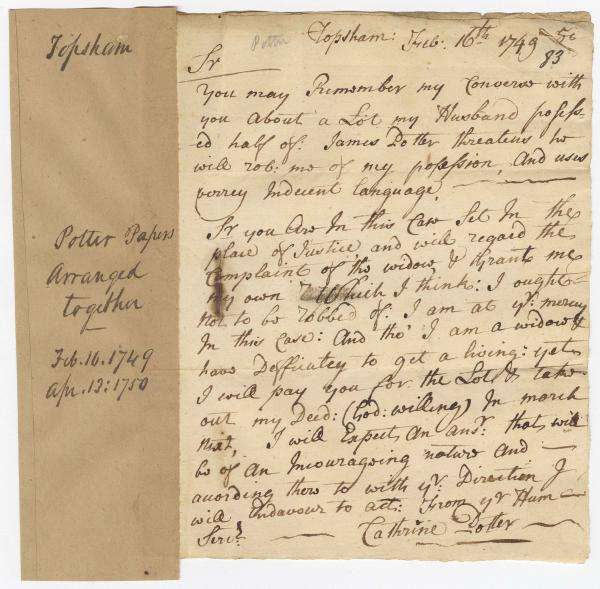 Topsham
Potter Papers
Arranged
together
Feb. 16. 1749
Apr. 13: 1750
Potter
Topsham: Feb: 16th 1749
83
Sr
You may Remember my Converse with
you About a Lot my Husband posess-
ed half of: James Potter threatens he
will rob: me of my posession, And uses
verrey Indecent language.
Sr you Are In this Case Set In the
place of Justice and will regard the
Complaint of the widow, & Grant me
my own Which I think: I ought
not to be robbed of: I am at yr: mercey
In this Case: And tho' I am a widow &
have Defficutey to get a living: yet
I will pay you for the Lot & take
out my Deed: (God: willing) In march
Next, I will Expect An ansr: that will
be of An Incourageing nature And
acording there to with yr: Direction I
will Endavour to act: From yr Hum
Servt Cathrine Potter